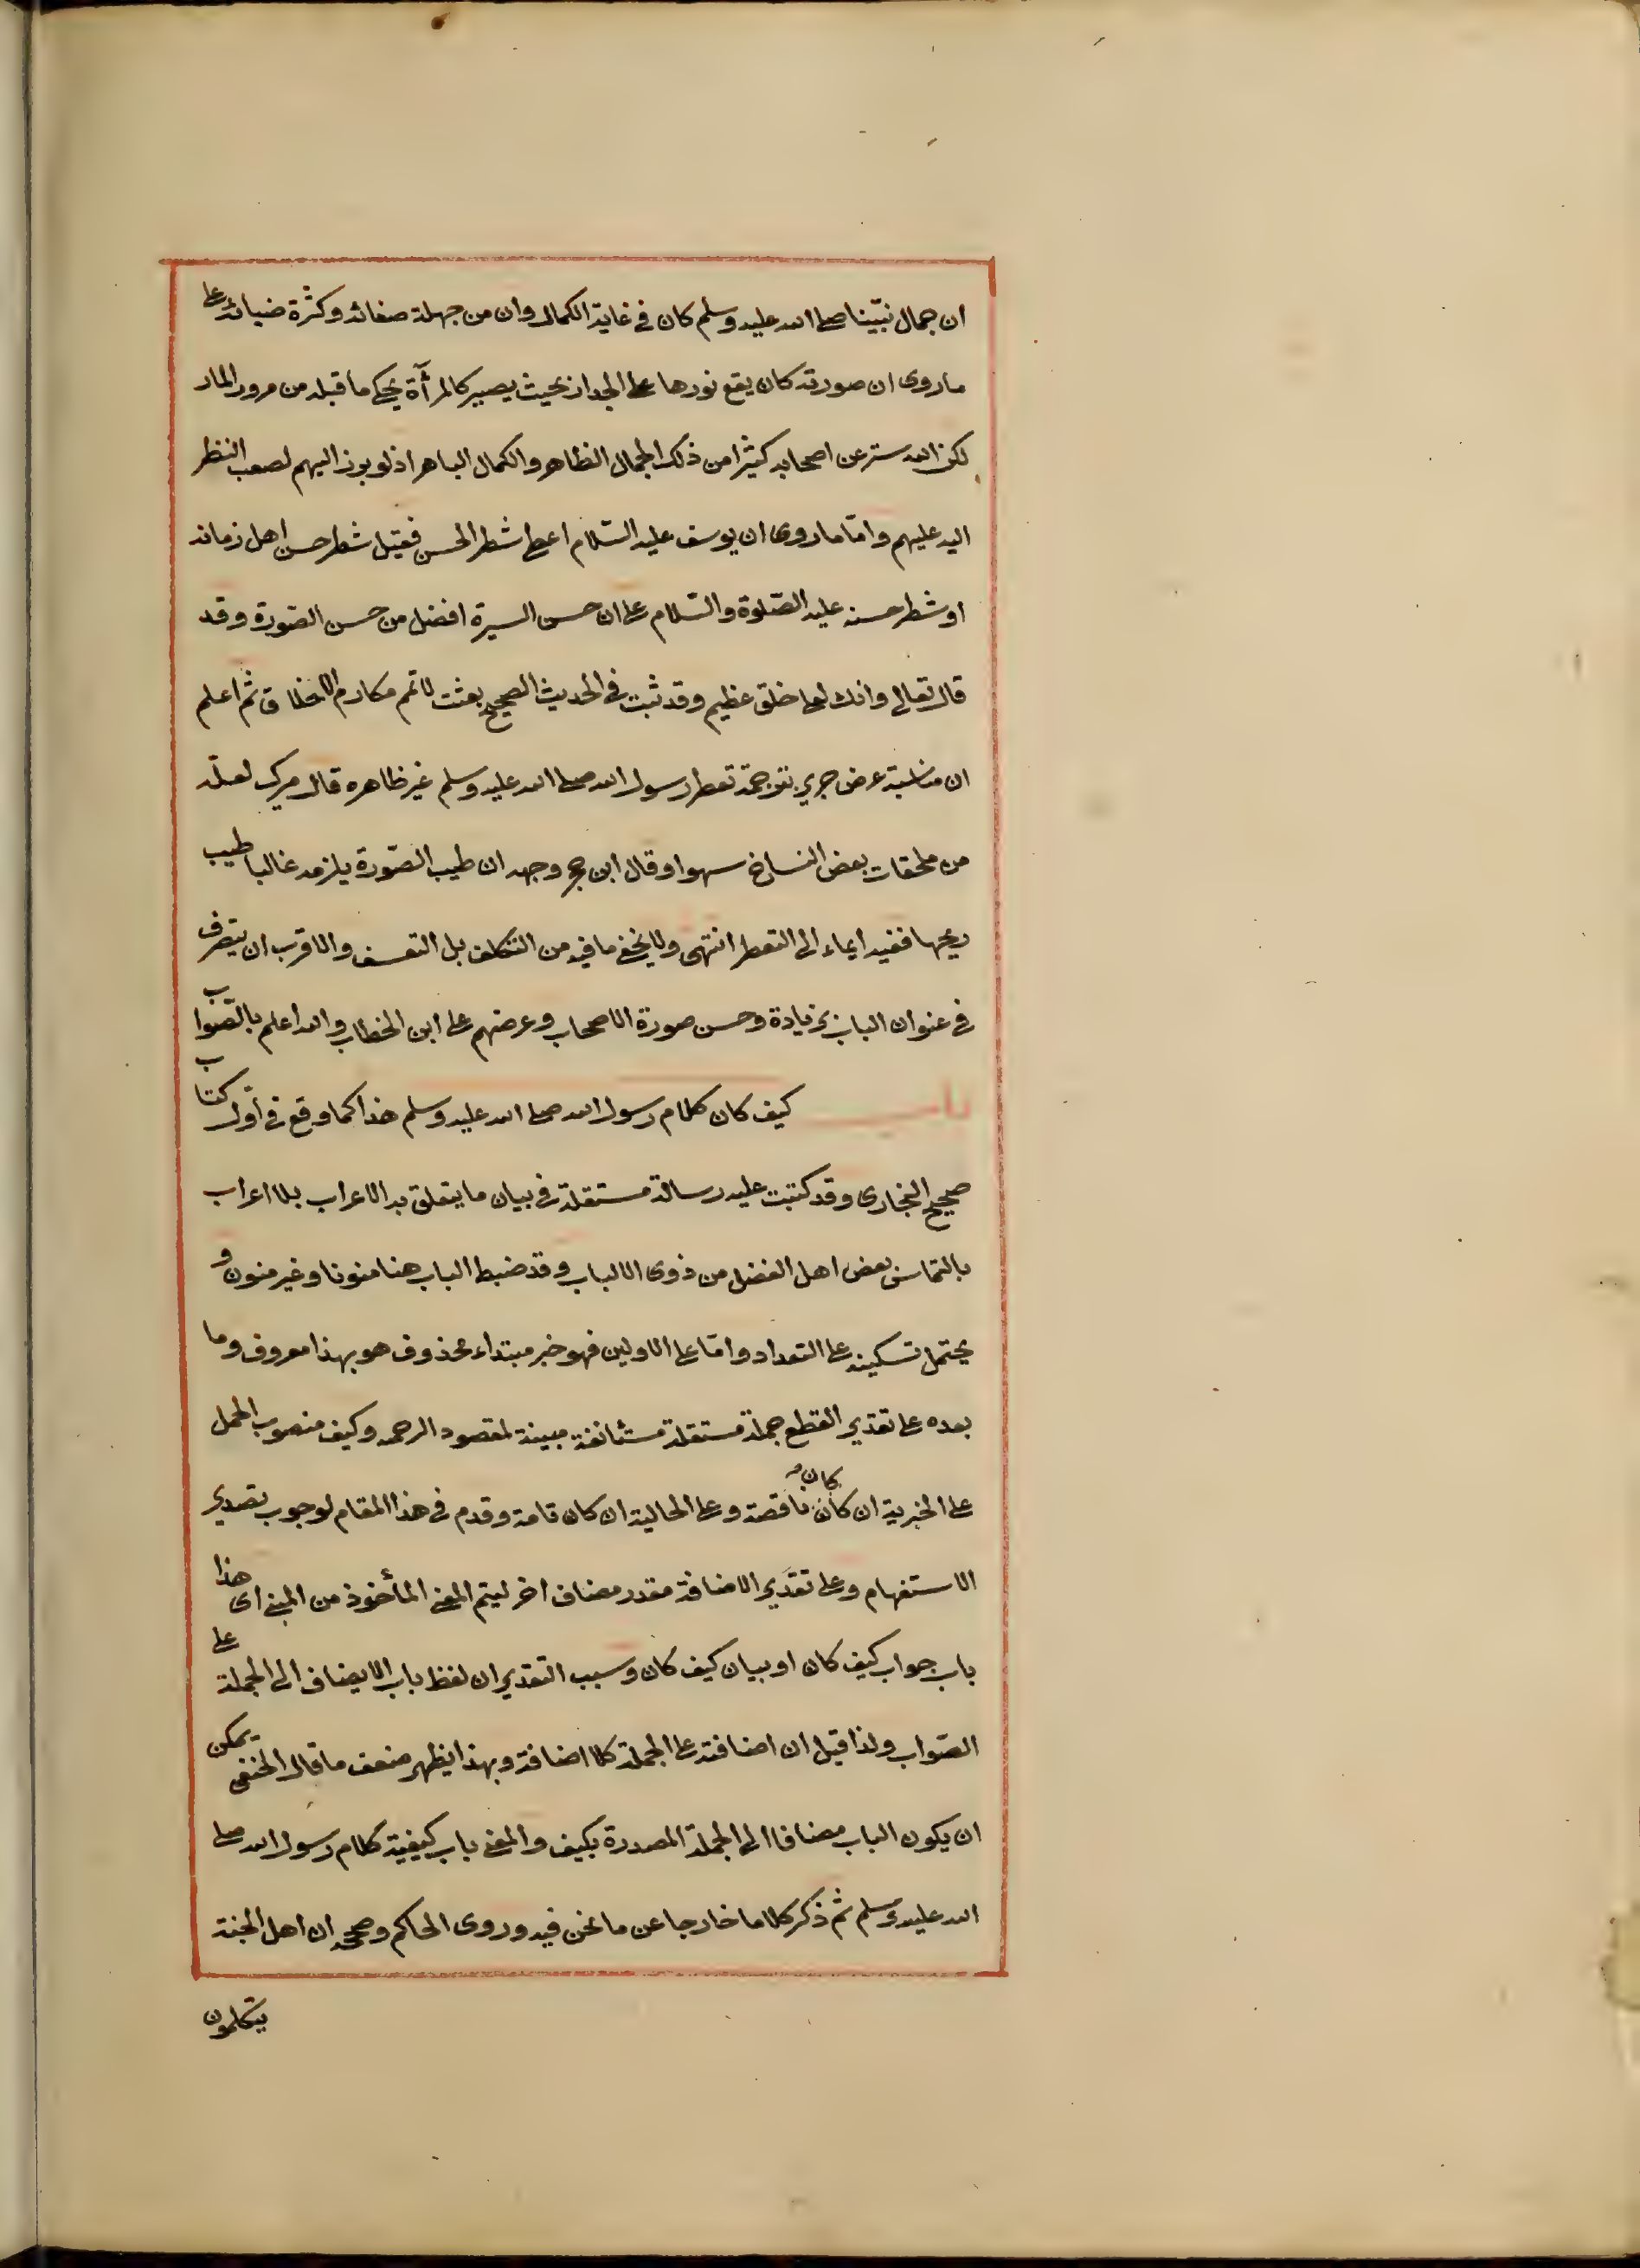 ان جمال نبّينا صلى الله عليه وسلم كان فى غاية الكمال وان من جهلة صفائه وكثرة ضيائه على
ما روى ان صورته كان يقع نورها على الجدار بحيث يصير كالمرآة يحكى ما قبله من مرور المار
لكن الله ستر عن اصحابه كثيرا من ذلك الجمال الظاهر والكمال الباهر اذ لو برز اليهم لصعب النظر
اليه عليهم وامّا ما روى ان يوسف عليه السّلام اعطى شطر الحسن فقيل شطر حسن اهل زمانه
او شطر حسنه عليه الصّلوة والسّلام على ان حسن السيرة افضل من حسن الصّورة وقد
قال تعالى وانك لعلى خلق عظيم وقد ثبت فى الحديث الصحيح بعثت لاتمم مكارم الاخلاق ثم اعلم
ان مناسبة عرض جرير بترجمة تعطر رسول الله صلى الله عليه وسلم غير ظاهره قال ميرك لعلّه
من ملحقات بعض النساخ سهوا وقال ابن حجر وجهه ان طيب الصّورة يلزمه غالبا طيب
ريحها ففيه ايماء الى التعطر انتهى ولا يخفى ما فيه من التكلف بل التعسف والاقرب ان يتصرف
فى عنوان الباب بزيادة وحسن صورة الاصحاب وعرضهم على ابن الخطاب والله اعلم بالصّواب
باب كيف كان كلام رسول الله صلى الله عليه وسلم هذا كما وقع فى اوّل كتاب
صحيح البخارى وقد كتبت عليه رسالة مستقلة فى بيان ما يتعلق به الاعراب بلا اعراب
بالتماس بعض اهل الفضل من ذوى الالباب وقد ضبط الباب هنا منونا وغير منون و
يحتمل تسكينه على التعداد وامّا على الاولين فهو خبر مبتداء محذوف هو بهذا معروف وما
بعده على تقدير القطع جملة مستقلة مستانفة مبينة لمقصود الرحمه وكيف منصوب المحل
على الخبرية ان كان كان ناقصة وعلى الحالية ان كان تامة وقدم فى هذا المقام لوجوب تصدير
الاستفهام وعلى تقدير الاضافة مقدر مضاف اخر ليتم المعنى المأخوذ من المبنى اى هذا
باب جواب كيف كان او بيان كيف كان وسبب التقدير ان لفظ باب لا يضاف الى الجملة على
الصّواب ولذا قيل ان اضافته على الجملة كلا اضافة وبهذا يظهر ضعف ما قال الحنفى يمكن
ان يكون الباب مضافا الى الجملة المصدرة بكيف والمعنى باب كيفية كلام رسول الله صلى
الله عليه وسلم ثم ذكر كلاما خارجا عن ما نحن فيه وروى الحاكم وصححه ان اهل الجنة
يتكلمون